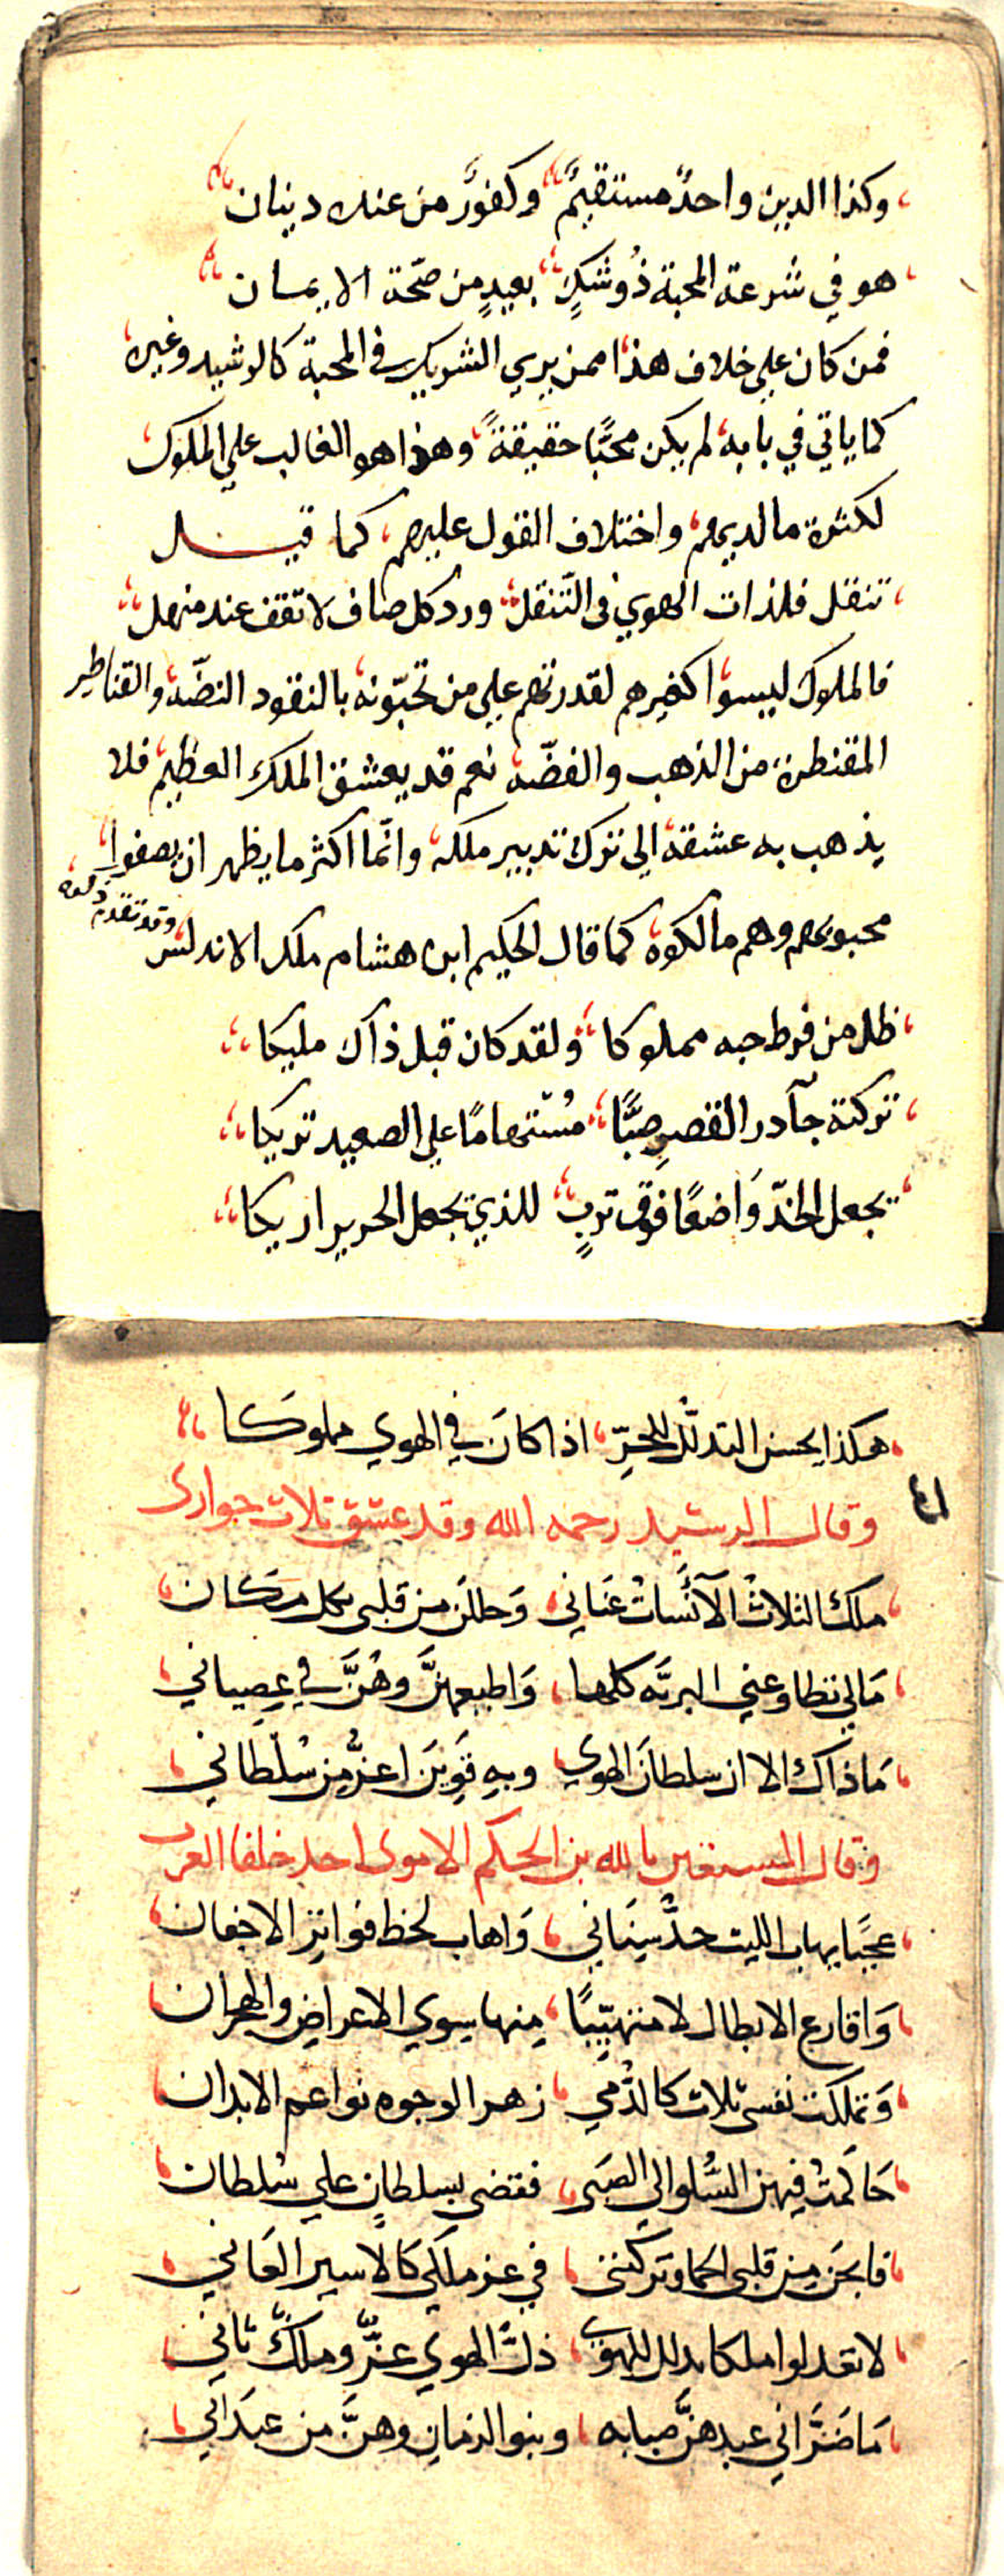 وكذا الدين واحدٌ مستقيمٌ وكفورٌ من عنده دينان
هو في شرعة المحبة ذُو شكٍ بعيدٍ من صحّة الايمان
فمن كان علي خلاف هذا ممن يري الشريك في المحبة كالرشيد وغيره
كما ياتي في بابه لم يكن محبًّا حقيقةً وهذا هو الغالب علي الملوك
لكثرة مالديهم واختلاف القول عليهم كما قيل
تنقل فلذات الهوي في التّنقل ورد كل صاف لا تقف عند منهل
فالملوك ليسوا كغيرهم لقدرتهم علي من تحبّونه بالنقود النضّه والقناطير
المقنطرة من الذهب والفضّه نعم قد يعشق الملك العظيم فلا
يذهب به عشقه الي ترك تدبير ملكه وانّما اكثر ما يظهر ان يصفوا
محبوبهم وهم مالكوه كما قال الحكيم ابن هشام ملك الاندلس وقد تقدم
ظل من فرط حبه مملوكا ولقد كان قبل ذآك مليكا
تركته جآدر القصرِ صبًّا مُستهامًا علي الصعيد تريكا
يجعل الخدّ وَاضعًا فوق تربٍ للذي يجعل الحرير اريكا
هكذا يحسن التدلّل للحرِّ اذا كانَ في الهوي مملوكا
وقال الرشيد رحمه الله وقد عشق ثلاث جواري
ملك الثلاث الآنسات عَناني وَحللنَ من قلبي بكل مكان
مَالي تطاوعني البريّه كلها وَاطيعهنَّ وهُنَّ في عِصياني
مَا ذاك الا ان سلطانَ الهوي وبهِ قَوِينَ اعزُّ مِن سُلطاني
وقال المستعين بالله بن الحكم الاموي احد خلفا الغرب
عجبًا يهاب الليث حدَّ سِنَاني وَاهاب لحظ فواتِرِ الاجفان
وَاقارع الابطال لا متهيّبًا مِنها سِوي الاعراضِ والهجران
وَتملكت نفسي ثلاث كالدُّمي زهر الوجوه نواعم الابدان
حَاكمتُ فيهن السُّلو الي الصبى فقضي بسلطانٍ علي سُلطان
فابحن مِن قلبي الحما وتركنني في عز ملكي كالاسير العَاني
لا تعدلوا ملكا بدلل للهوى ذلّ الهوي عزٌّ وملكٌ ثاني
مَا ضَرَّ اني عبدهنَّ صبابه وبنو الزمانِ وهنَّ من عبدَاني